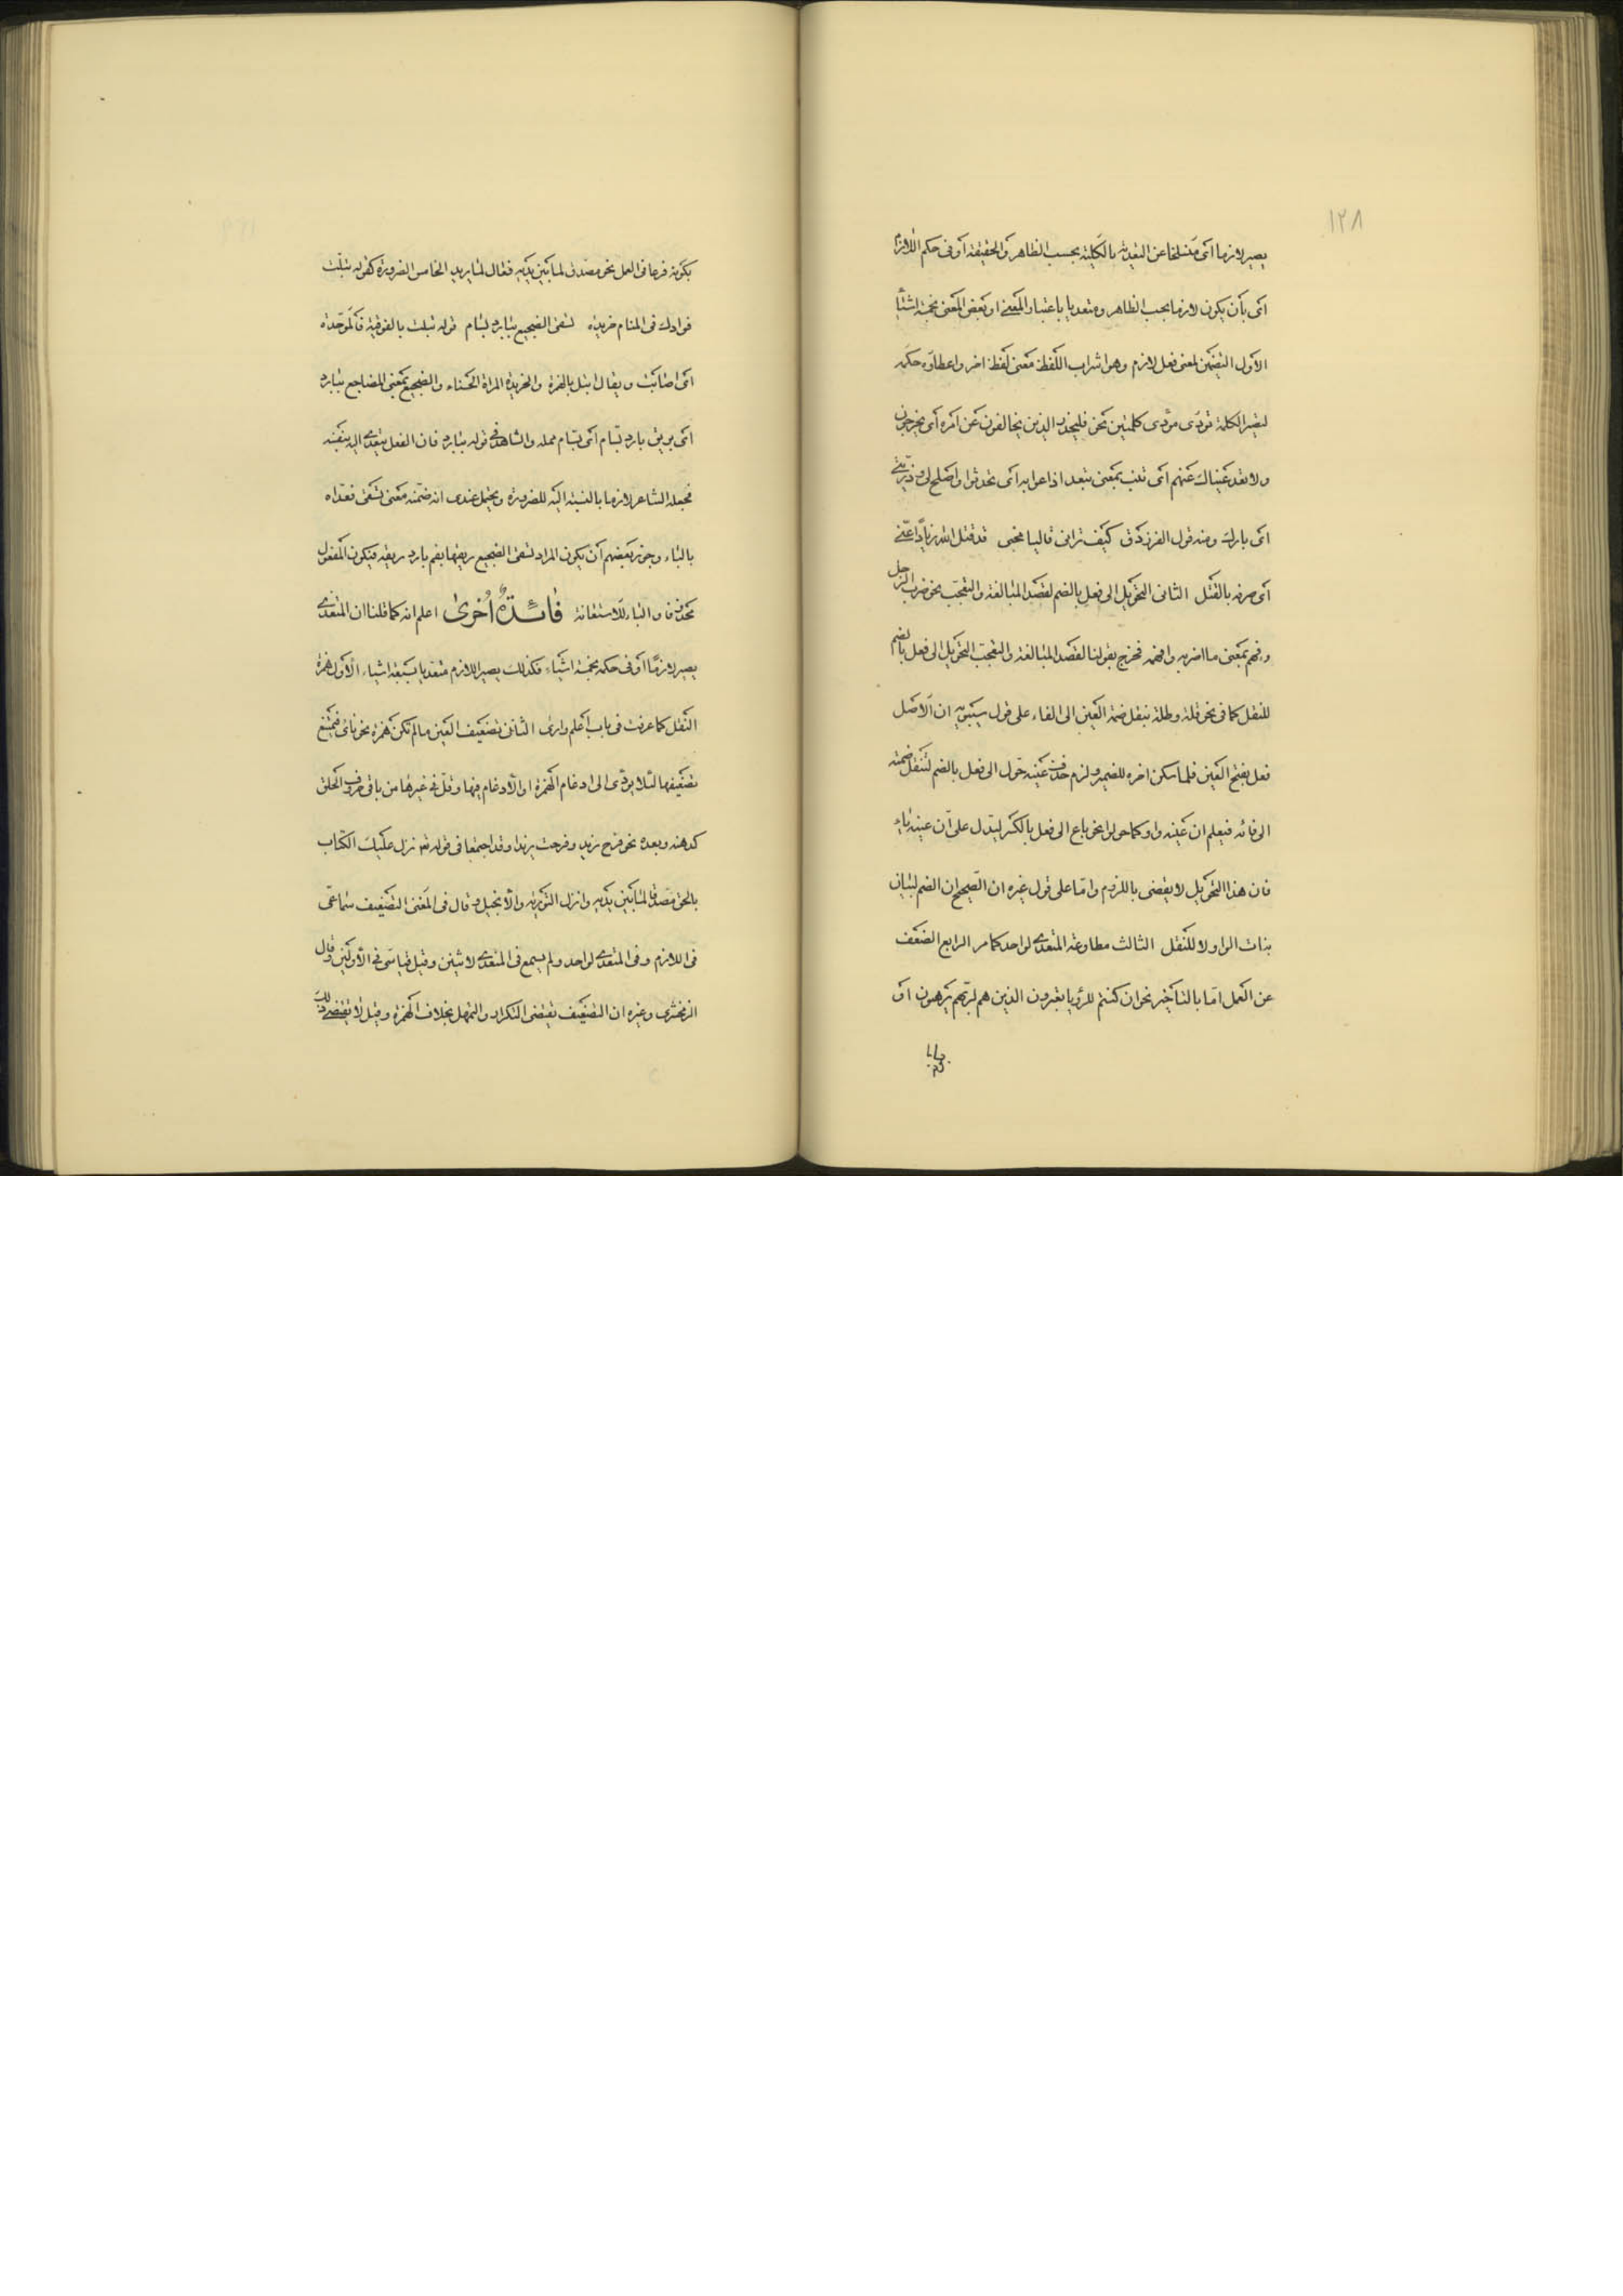 ١٢٨
يصير لازما اى منسلخا عن التعدية بالكلية بحسب الظاهر والحقيقة أو فى حكم اللازم
اى بأن يكون لازما بحسب الظاهر ومتعديا باعتبار المعنى او بعض المعنى بخمسة اشيأ
الأول التضمين لمعنى فعل لازم وهو اشراب اللفظ معنى لفظ اخر واعطاؤه حكمه
لتصير الكلمة تؤدى مؤدى كلمتين نحو فليحذر الذين يخالفون عن أمره أى يخرجون
ولا تعد عيناك عنهم اى تنب بمعنى تبعد اذاعوا به أى تحدثوا واصلح لى فى ذريتى
اى بارك ومنه قول الفرزدق كيف ترانى قاليا مجنى قد قتل الله زيادًا عنى
أى صرفه بالقتل الثانى التحويل الى فعل بالضم لقصد المبالغة والتعجب نحو ضرب الرجل
وفهم بمعنى ما اضربه وافهمه فخرج بقولنا لقصد المبالغة والتعجب التحويل الى فعل بالضم
للنقل كما فى نحو قلة وطلة بنقل ضمة العين الى الفاء على قول سيبويه ان الأصل
فعل بفتح العين فلما سكن اخره للضمير ولزم حذف عينه حول الى فعل بالضم لتنقل ضمته
الى فائه فيعلم ان عينه واو كما حولوا نحو باع الى فعل بالكسر ليدل على أن عينه ياء
فان هذا التحويل لا يقضى باللزوم وامّا على قول غيره ان الصحيح ان الضم لبيان
بنات الواو لا للنقل الثالث مطاوعة المتعدى لواحد كما مر الرابع الضعف
عن العمل امّا بالتأخير نحو ان كنتم للرؤيا تعبرون الذين هم لربهم يرهبون أو
بكونه فرعا فى العمل نحو مصدق لما بين يديه فعّال لما يريد الخامس الضرورة كقوله تبلت
فوادك فى المنام خريدة تسقى الضجيع ببارد بسّام قوله تبلت بالفوقية فالموحدة
اى اصابت ويقال ابتل بالهمزة والخريدة المرأة الحسناء والضجيع بمعنى المضاجع ببارد
اى بريق بارد بسام اى بسّام محله والشاهد فى قوله ببارد فان الفعل يتعدى اليه بنفسه
فجعله الشاعر لازما بالنسبة اليه للضرورة ويحتمل عندى انه ضمنه معنى تشفى فعداه
بالباء وجوز بعضهم أن يكون المراد تسقى الضجيع ريقها بفم بارد ريقه فيكون المفعول
محذوفا والباء للاستعانة فائدة أخرى اعلم انه كما قلنا ان المتعدى
يصير لازمًا أو فى حكمه بخمسة اشياء فكذلك يصير اللازم متعديا بسبعة اشياء الأول همزة
النقل كما عرفت فى باب أعلم وارى الثانى تضعيف العين ما لم تكن همزة نحو نأى فيمتنع
تضعيفها لئلا يؤدى الى ادغام الهمزة او الأدغام فيها وقل فى غيرها من باقى حروف الحلق
كدهنه وبعده نحو فرح زيد وفرحت زيدا وقد اجتمعا فى قوله تع نزل عليك الكتاب
بالحق مصدقا لما بين يديه وانزل التورية والأنجيل وقال فى المغنى التضعيف سماعى
فى اللازم وفى المتعدى لواحد ولم يسمع فى المتعدى لاثنين وقيل قياسى فى الأولين وقال
الزمخشرى وغيره ان التضعيف يقتضى التكرار والتمهل بخلاف الهمزة وقيل لا يقتضى ذلك